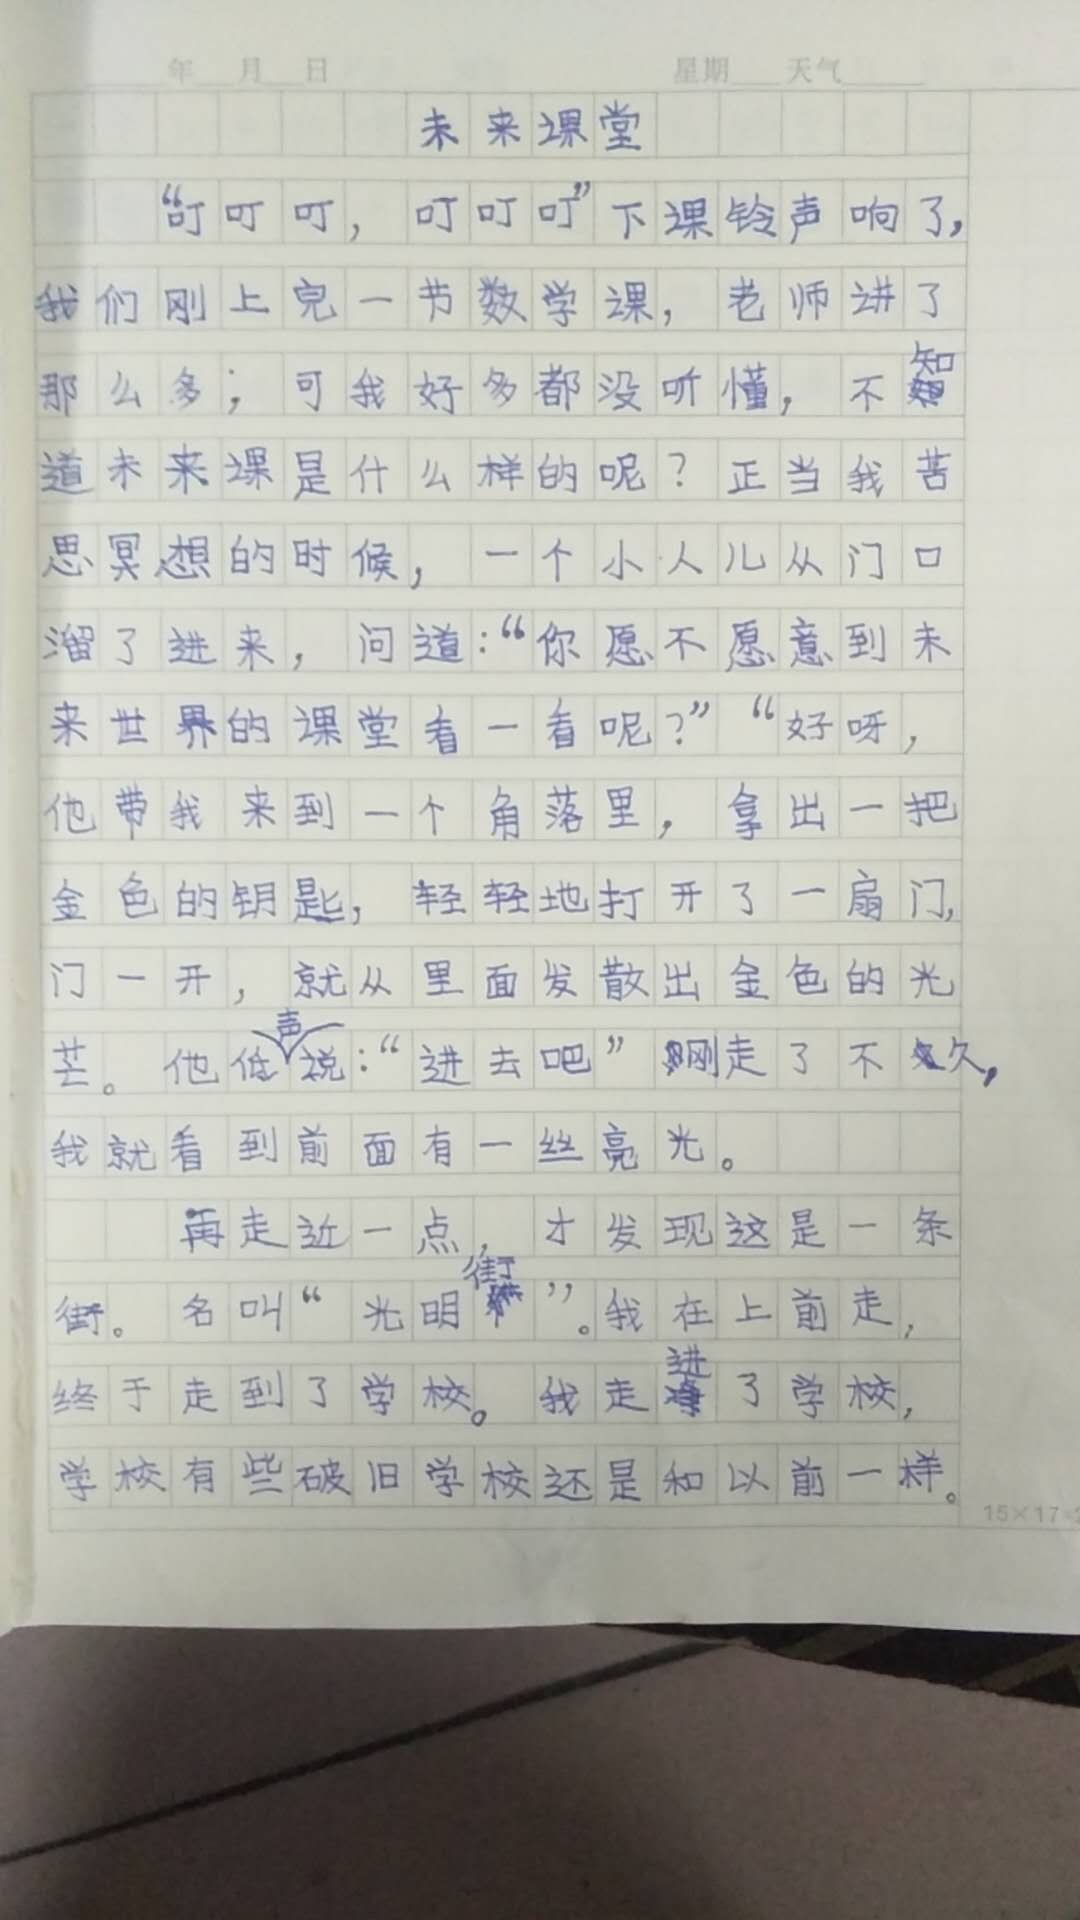 年 月 日 星期 天气
未来课堂
“叮叮叮，叮叮叮”下课铃声响了，
我们刚上完一节数学课，老师讲了
那么多；可我好多都没听懂，不知
道未来课是什么样的呢？正当我苦
思冥想的时候，一个小人儿从门口
溜了进来，问道：“你愿不愿意到未
来世界的课堂看一看呢？”“好呀，
他带我来到一个角落里，拿出一把
金色的钥匙，轻轻地打开了一扇门，
门一开，就从里面发散出金色的光
芒。他低声说：“进去吧”刚走了不久，
我就看到前面有一丝亮光。
再走近一点，才发现这是一条
街。名叫“光明街”。我在上前走，
终于走到了学校。我走进了学校，
学校有些破旧学校还是和以前一样。
15×17